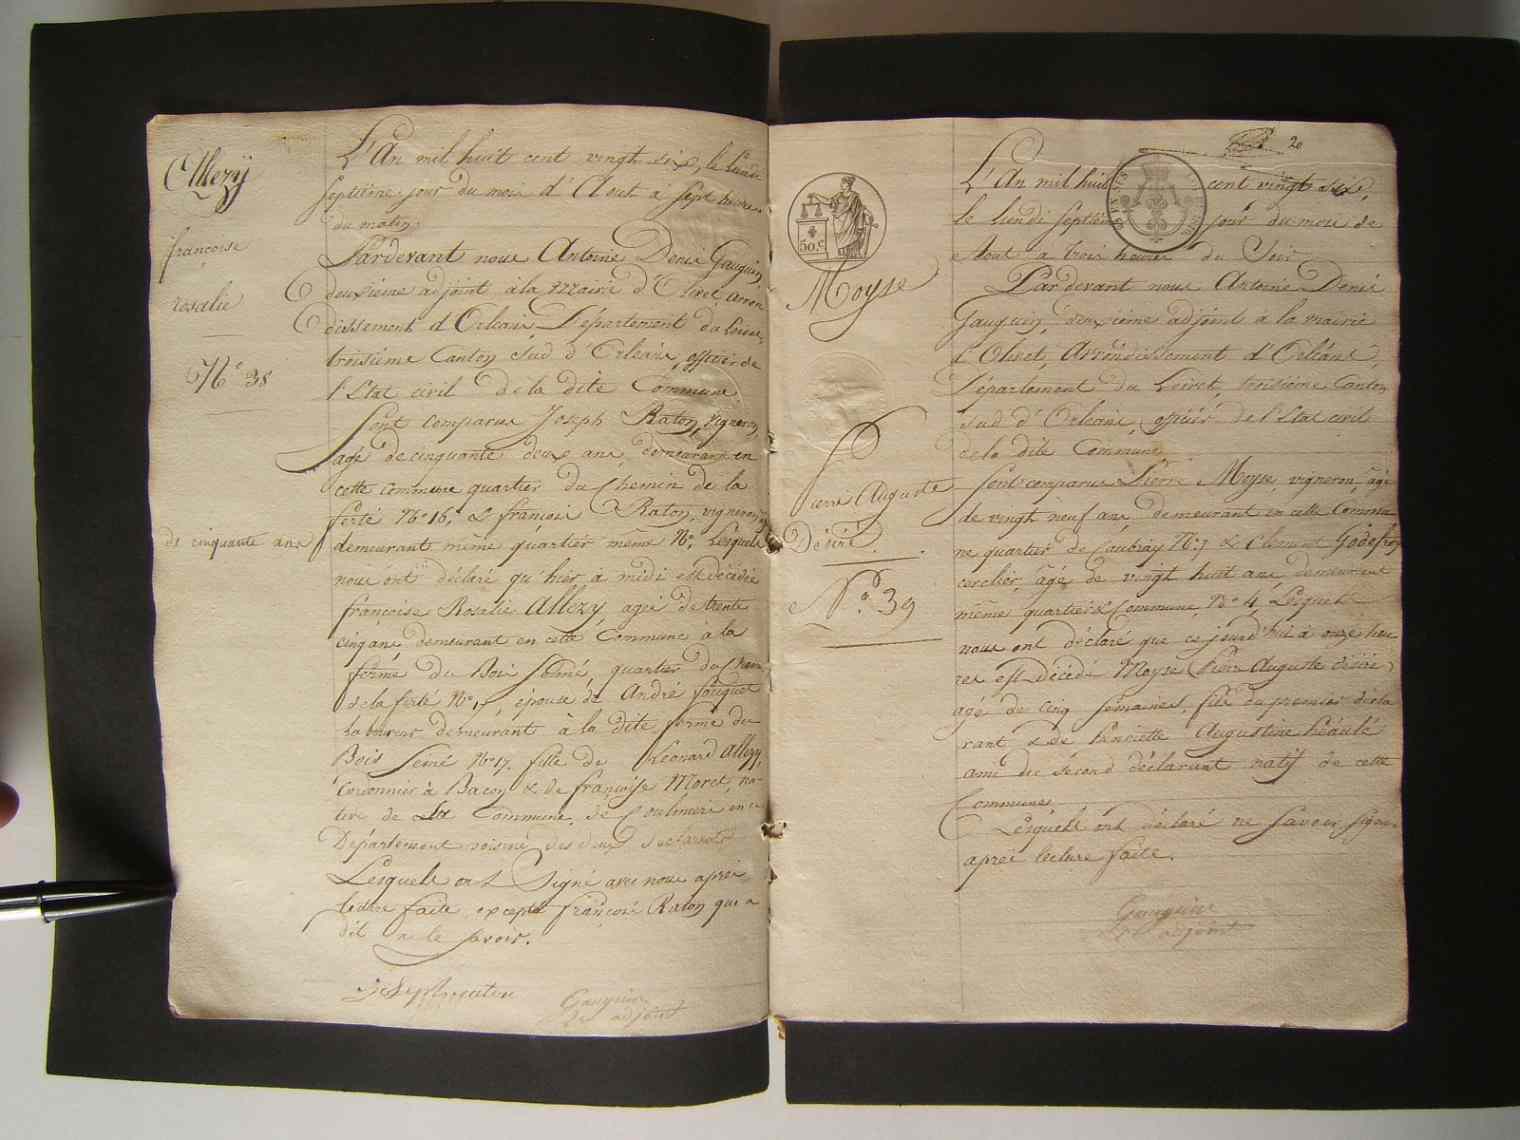 Allezÿ
françoise
rosalie
N.° 38
de cinquante ans
L'An mil huit cent vingt-six, le Lundi
septième jour du mois d'Aout à sept heures
du matin
Pardevant nous Antoine Denis Gauguin,
deuxième adjoint à la Mairie d'Olivet, arron
dissement d'Orléans, Département du Loiret,
troisième Canton Sud d'Orléans, officier de
l'Etat civil de la dite Commune
Sont comparus Joseph Raton, vigneron,
agé de cinquante deux ans, demeurant en
cette commune quartier du Chemin de la
ferté N° 16, & françois Raton, vigneron
demeurant même quartier même N°, Lesquels
nous ont déclaré qu'hier à midi est décédée
françoise Rosalie Allezy, agée de trente
cinq ans demeurant en cette Commune à la
ferme du Bois Semé, quartier du Chemin
de la ferté N° 17, épouse de André fouquet
laboureur demeurant à la dite ferme du
Bois Semé N° 17. fille de Léonard Allezy,
Cordonnier à Bacon & de françoise Moret, na-
tive de la Commune de Coulmiers en ce
Département voisine des deux déclarants
Lesquels ont Signé avec nous après
lecture faite, excepté françois Raton qui a
dit ne le savoir.
Gauguin
adjoint
20
50.C
Moyse
Pierre Auguste
Désiré
N.° 39
L'An mil huit cent vingt six,
le lundi septième jour du mois de
Aout à trois heures du Soir
Pardevant nous Antoine Denis
Gauguin, deuxième adjoint à la mairie
d'Olivet, Arrondissement d'Orléans,
Département du Loiret, troisième Canton
Sud d'Orléans, officier de l'Etat civil
de la dite Commune
Sont comparus Pierre Moyse, vigneron, âgé
de vingt neuf ans demeurant en cette Commu
ne quartier de Caubray N° 7 & Clément Godefroy
cerclier, âgé de vingt huit ans demeurant
même quartier & Commune, N° 4, Lesquels
nous ont déclaré que ce jourd'hui à onze heu
res est décédé Moyse (Pierre Auguste désiré)
agé de cinq semaines, fils du premier décla
rant & de henriette Augustine
ami du second déclarant natif de cette
Commune
Lesquels ont déclaré ne Savoir Signer
après lecture faite.
Gauguin
adjoint